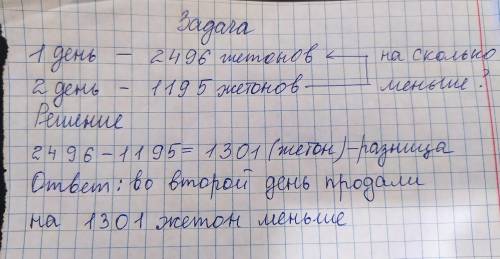 Задача
1 день – 2496 жетонов на сколько
2 день – 1195 жетонов меньше?
Решение
2496-1195=1301(жетон)-разница
Ответ: во второй день продали
на 1301 жетон меньше